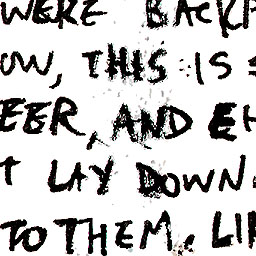 WERE BACKP
OW, THIS IS
EER, AND EH
T LAY DOWN.
TO THEM. LI